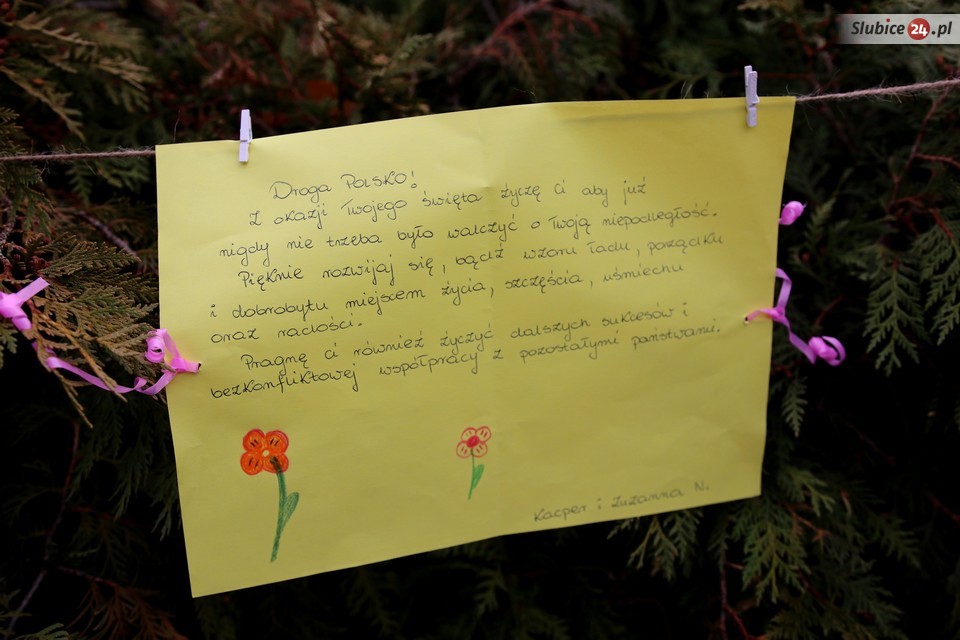 Slubice24.pl
Droga Polsko!
Z okazji Twojego święta życzę Ci aby już
nigdy nie trzeba było walczyć o Twoją niepodległość.
Pięknie rozwijaj się, bądź wzoru ładu, porządku
i dobrobytu miejscem życia, szczęścia, uśmiechu
oraz radości.
Pragnę ci również życzyć dalszych sukcesów i
bezkonfliktowej współpracy z pozostałymi państwami.
Kacper i Zuzanna N.